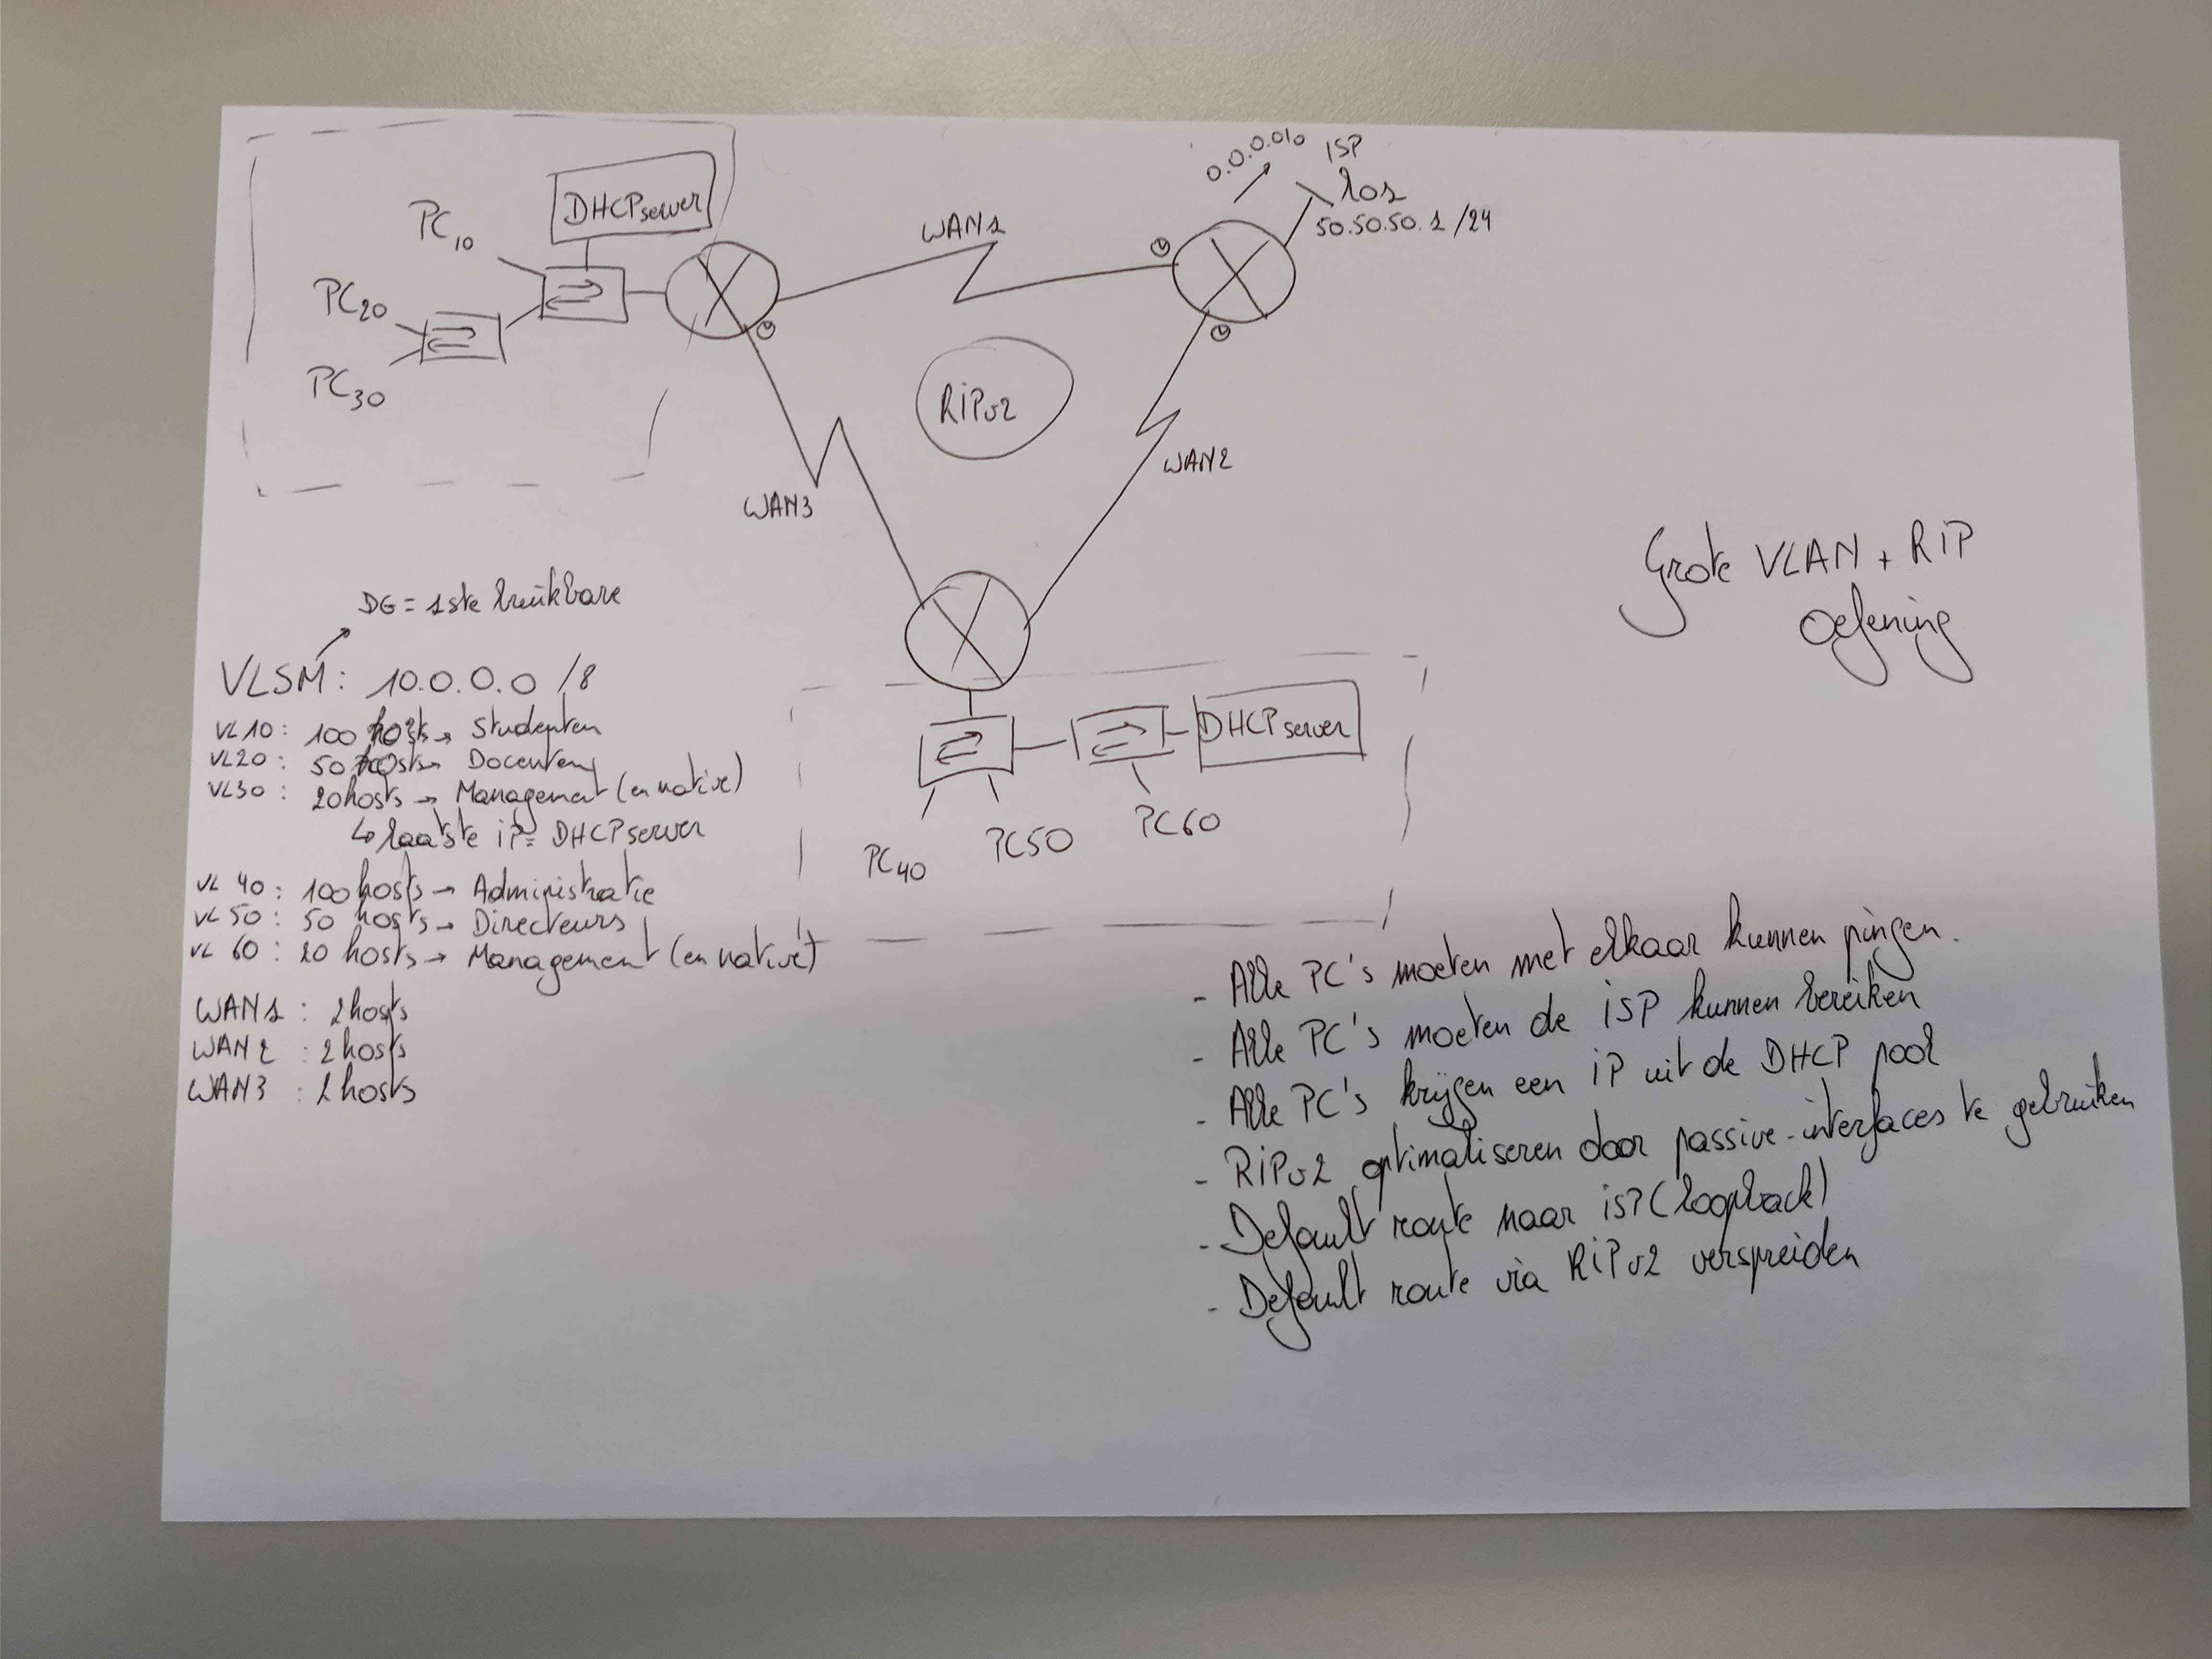 DHCPserver
PC10
PC20
PC30
WAN1
0.0.0.0/0
ISP
lo1
50.50.50.1 /24
RIPv2
WAN2
WAN3
Grote VLAN + RIP
Oefening
DG = 1ste bruikbare
VLSM: 10.0.0.0 /8
VL10: 100 hosts → Studenten
VL20: 50 hosts → Docenten
VL30: 20 hosts → Management (en native)
↳ laatste ip = DHCPserver
VL 40: 100 hosts → Administratie
VL 50: 50 hosts → Directeurs
VL 60: 20 hosts → Management (en native)
WAN1 : 2 hosts
WAN2 : 2 hosts
WAN3 : 2 hosts
DHCPserver
PC40
PC50
PC60
- Alle PC's moeten met elkaar kunnen pingen.
- Alle PC's moeten de ISP kunnen bereiken
- Alle PC's krijgen een IP uit de DHCP pool
- RIPv2 optimaliseren door passive-interfaces te gebruiken
- Default route naar ISP (loopback)
- Default route via RIPv2 verspreiden